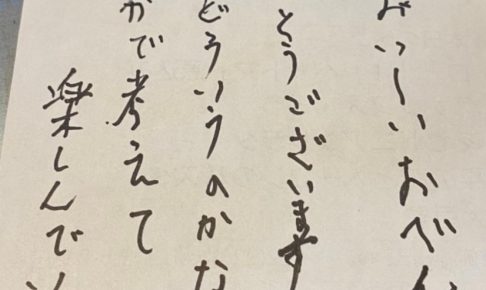 おいしいおべん
とうございます
どういうのかな
かで考えて
楽しんで